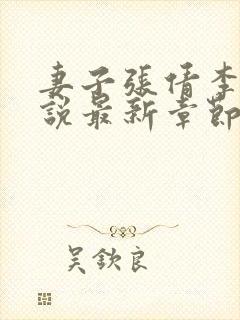 妻子張倩李
說最新章節
吳欽良